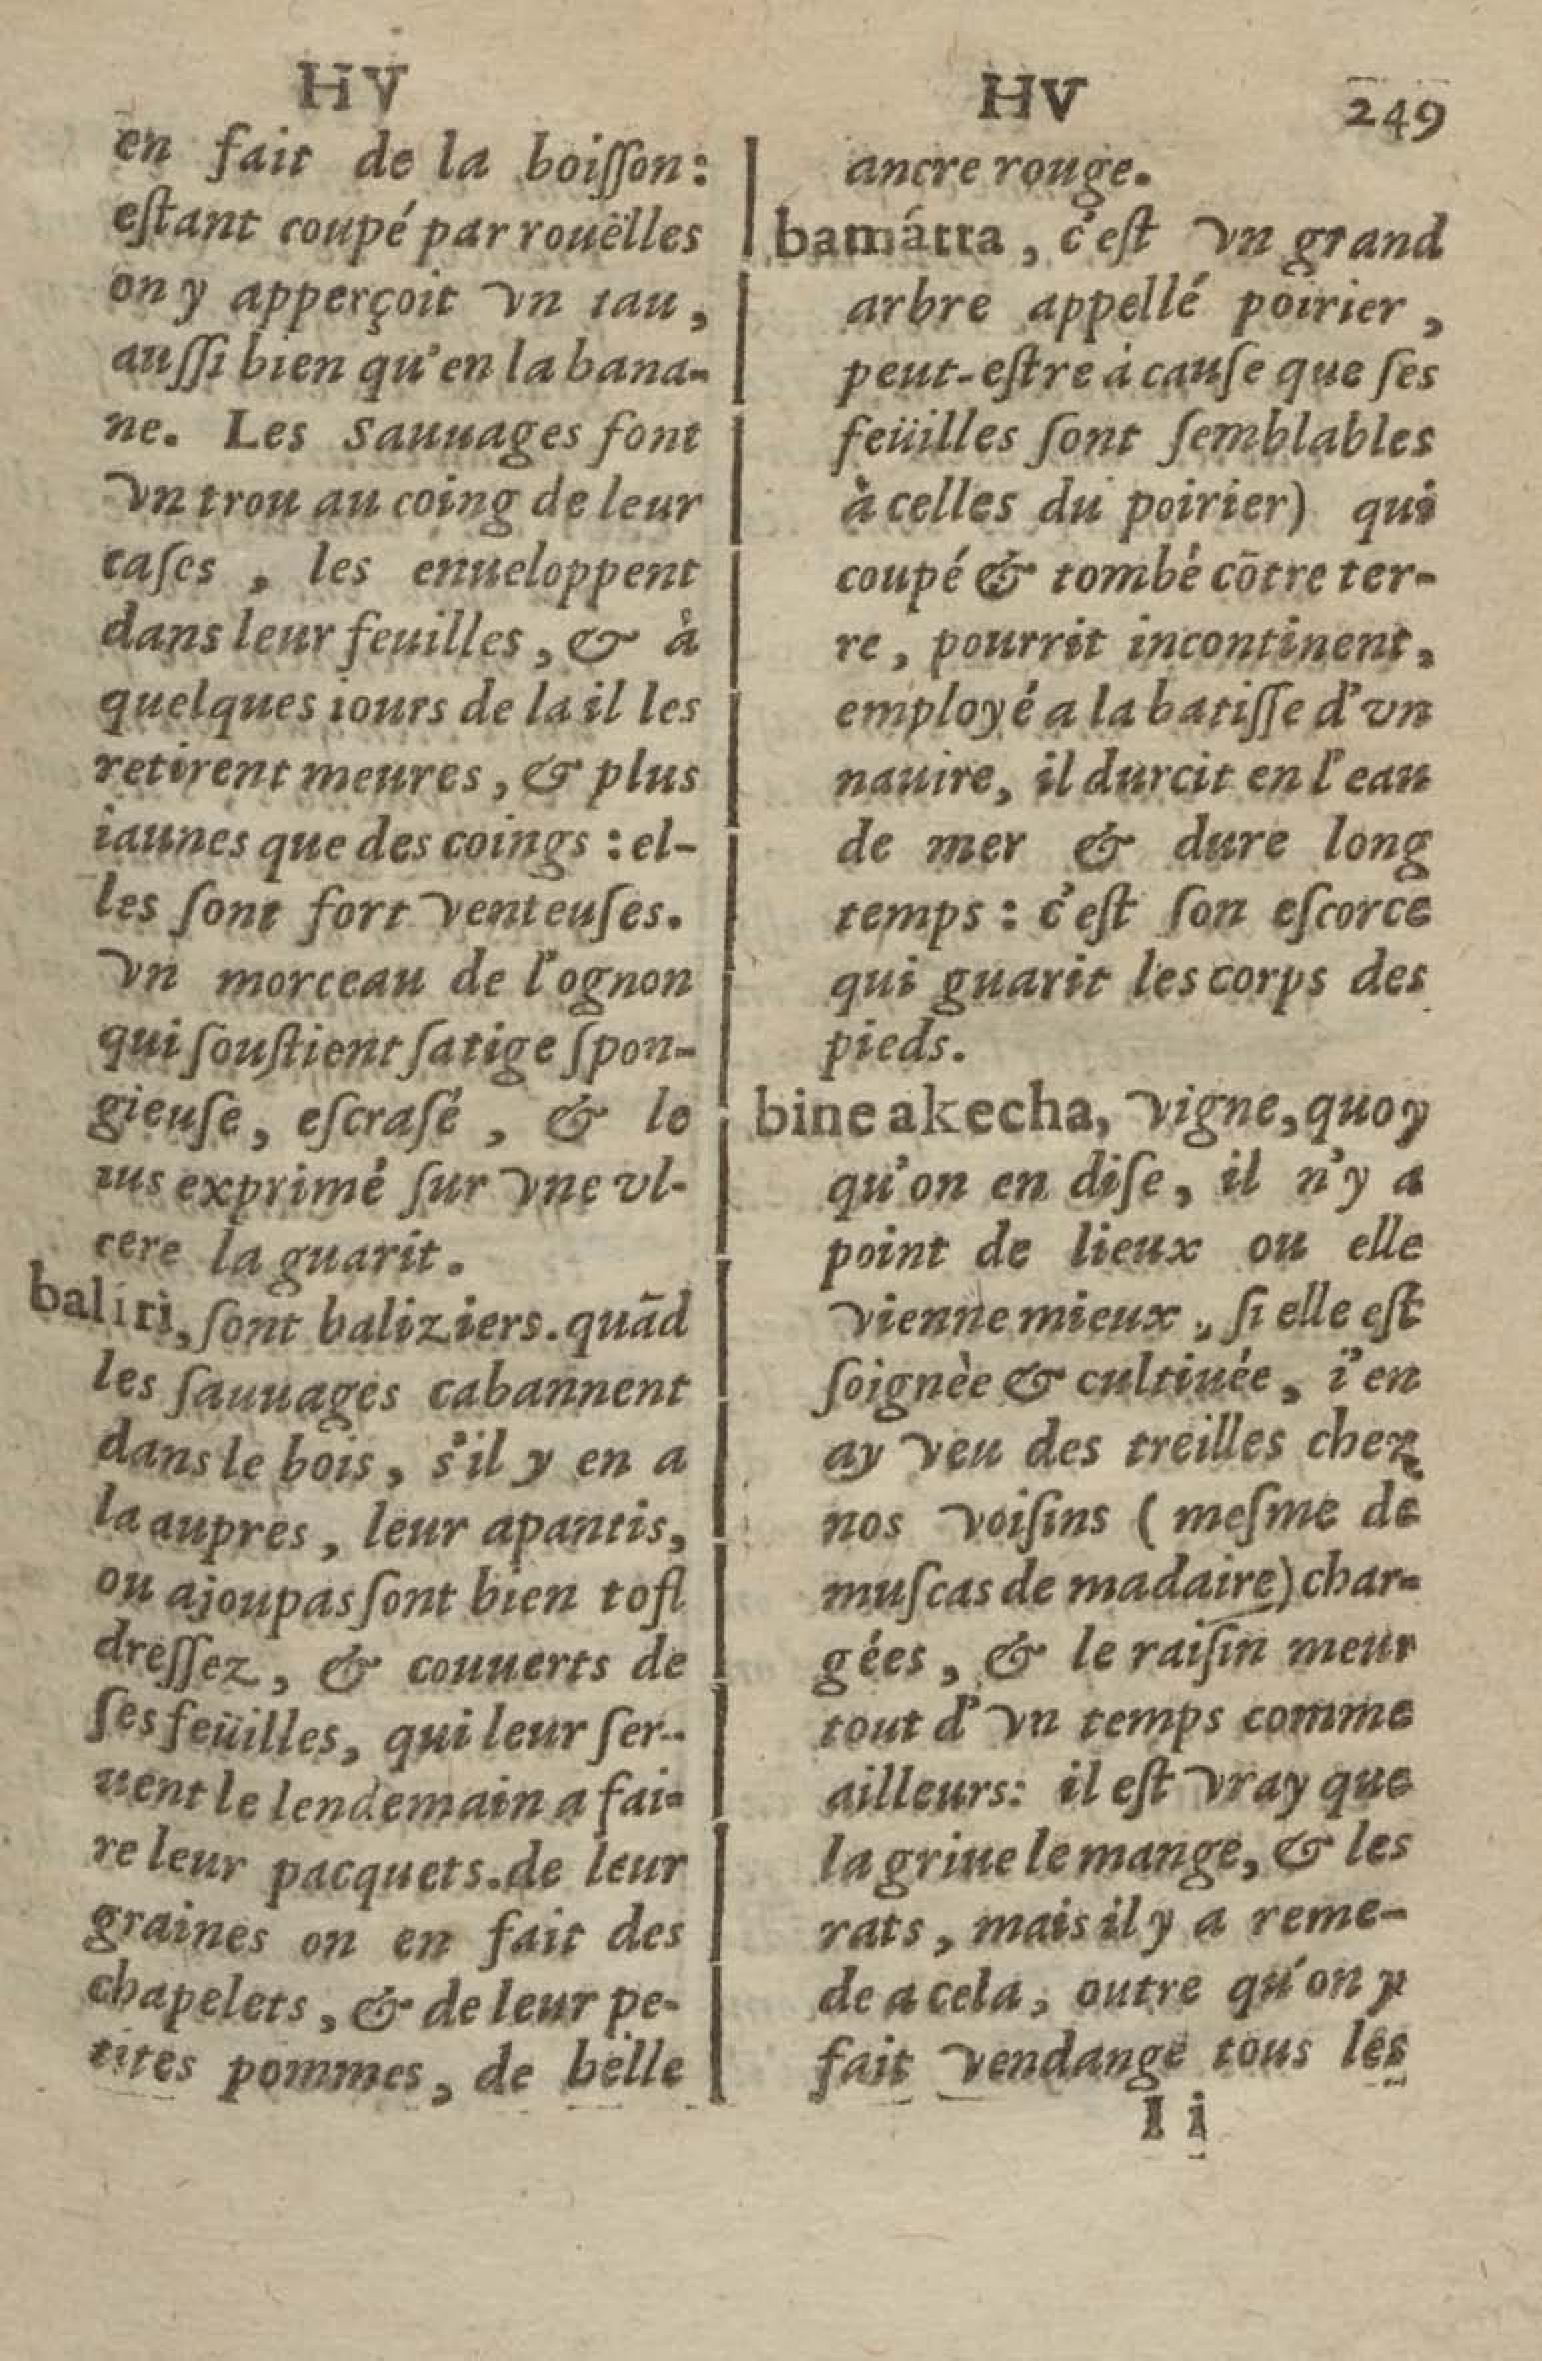 HV
en fait de la boiſſon:
eſtant coupé par rouëlles
on y apperçoit vn tau,
auſſi bien qu'en la bana-
ne. Les Sauuages font
vn trou au coing de leur
caſes, les enueloppent
dans leur feuilles, & à
quelques iours de la il les
retirent meures, & plus
iaunes que des coings : el-
les ſont fort venteuſes.
vn morceau de l'ognon
qui ſouſtient ſa tige ſpon-
gieuſe, eſcraſé, & le
ius exprimé ſur vne vl-
cere la guarit.
baliri, ſont baliziers. quãd
les ſauuages cabannent
dans le bois, s'il y en a
la aupres, leur apantis,
ou ajoupas ſont bien toſt
dreſſez, & couuerts de
ſes feüilles, qui leur ſer-
uent le lendemain a fai-
re leur pacquets. de leur
graines on en fait des
chapelets, & de leur pe-
tites pommes, de belle
HV 249
ancre rouge.
bamátta, c'eſt vn grand
arbre appellé poirier,
peut-eſtre à cauſe que ſes
feüilles ſont ſemblables
à celles du poirier) qui
coupé & tombé cõtre ter-
re, pourrit incontinent,
employé a la batiſſe d'vn
nauire, il durcit en l'eau
de mer & dure long
temps : c'eſt ſon eſcorce
qui guarit les corps des
pieds.
bine akecha, vigne, quoy
qu'on en diſe, il n'y a
point de lieux ou elle
vienne mieux, ſi elle eſt
ſoignèe & cultiuée, i'en
ay veu des treilles chez
nos voiſins ( meſme de
muſcas de madaire) char-
gées, & le raiſin meur
tout d'vn temps comme
ailleurs: il eſt vray que
la griue le mange, & les
rats, mais il y a reme-
de a cela, outre qu'on y
fait vendange tous les
I i